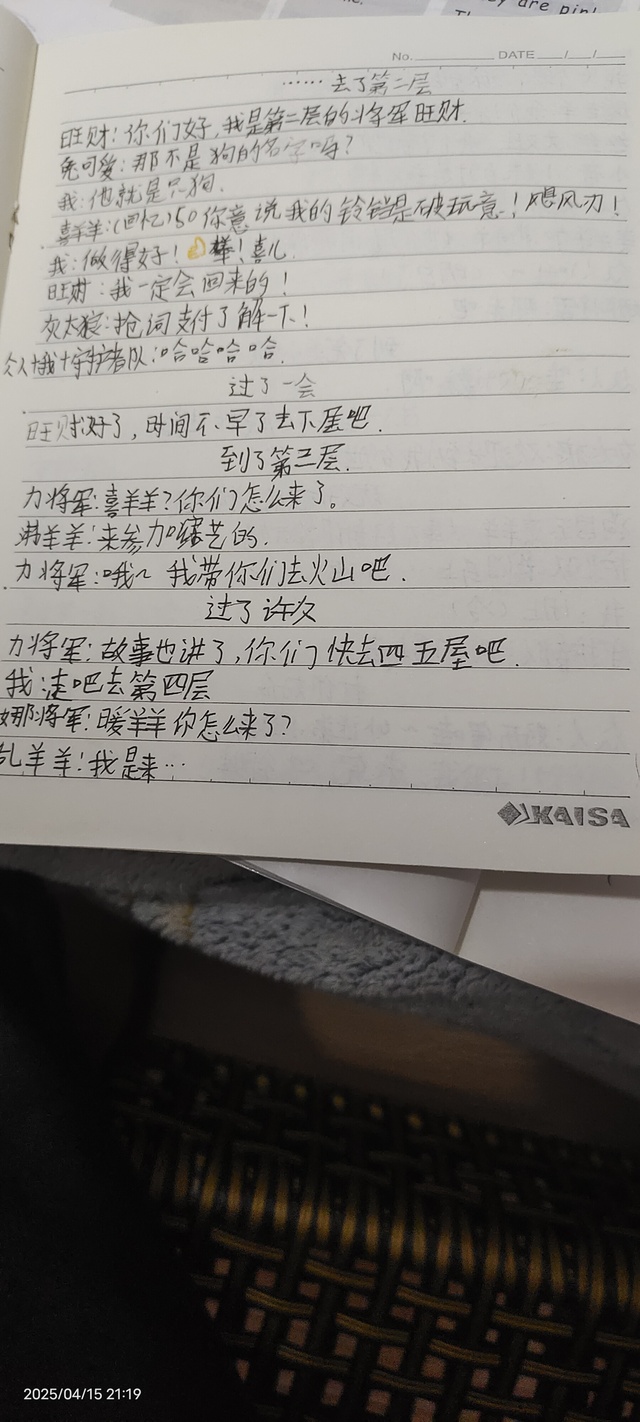 ey are pin
No. DATE / /
……去了第二层
旺财:你们好,我是第二层的将军旺财.
兔可爱:那不是狗的名字吗?
我:他就是只狗.
喜羊羊:(回忆)50你意说我的铃铛是破玩意!飓风刀!
我:做得好! 棒!喜儿
旺财:我一定会回来的!
灰太狼:抢词支付了解一下!
众人+我+守护者队:哈哈哈哈.
过了一会
旺财:好了,时间不早了去下屋吧.
到了第三层.
力将军:喜羊羊?你们怎么来了。
沸羊羊:来参加综艺的.
力将军:哦~ 我带你们去火山吧.
过了许久
力将军:故事也讲了,你们快去四五屋吧.
我:走吧去第四层
娜将军:暖羊羊你怎么来了?
羊羊:我是来…
KAISA
2025/04/15 21:19